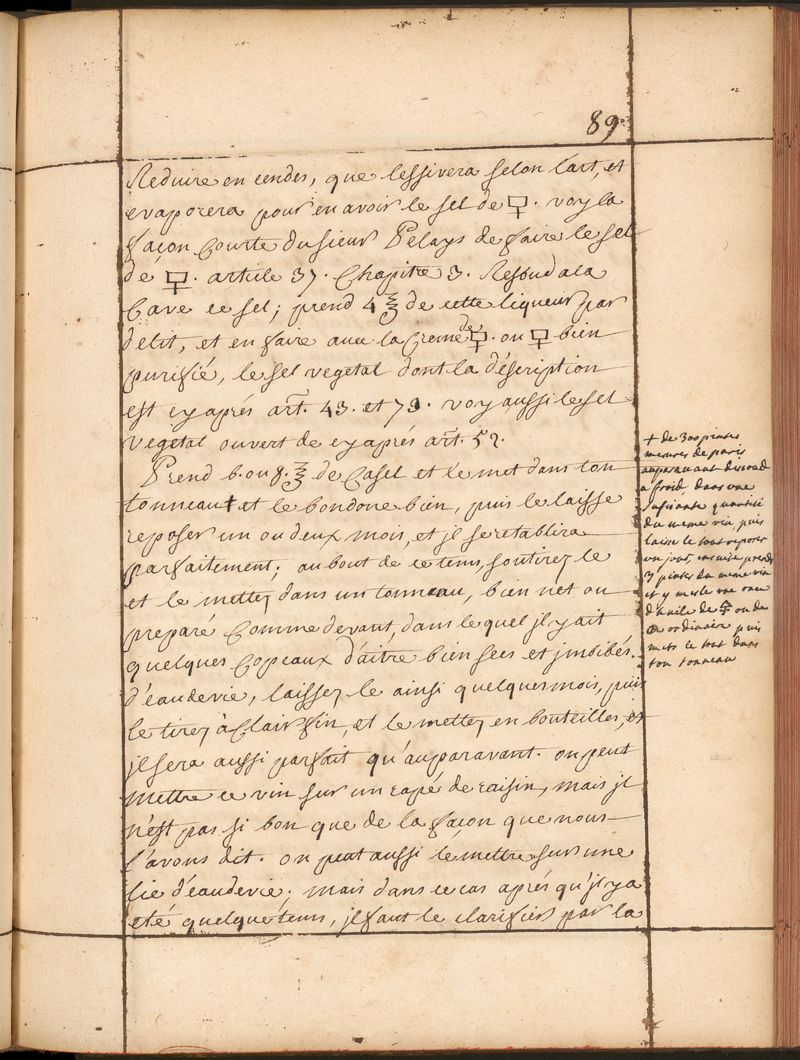 89.
Reduire en cendes, que lessivera selon l'art, et
evaporera pour en avoir le sel de 🜿. voy la
façon Courte du sieur Pelays de faire le sel
de 🜿. article 37. Chapitre 3. Resoud a la
Cave ce sel; prend 4 ℥ de cette liqueur par
delit, et en faire avec la Creme de 🜿. ou 🜿 bien
purifié, le sel vegetal dont la déscription
est cy aprés art. 43. et 79. voy aussi le sel
vegetal ouvert de cy aprés art. 52.
Prend 6. ou 8. ℥ de Ca sel et le met dans ton
tonneau + et le bondone bien, puis le laisse
reposer un ou deux mois, et jl se retablira
parfaitement; au bout de ce tems, soutirez le
et le mettez dans un tonneau, bien net ou
preparé Comme devant, dans le quel jl y ait
quelques Copeaux d'aitre bien secs et jmbibés
d'eau de vie, laissez le ainsi quelques mois, puis
le tirez à Clair fin, et le mettez en bouteilles, et
jl sera aussi parfait qu'auparavant. on peut
mettre ce vin sur un rapé de raisin, mais jl
n'est pas si bon que de la façon que nous
l'avons dit. on peut aussi le mettre sur une
lie d'eau de vie; mais dans ce cas aprés qu'jl y a
eté quelque tems, jl faut le clarifier par la
+ de 300 pintes
mesures de paris
auparavant dissoud
a froid, dans une
sufisante quantité
du meme vin puis
laisse le tout reposer
un jour, ensuite prend
3 pintes du meme vin
et y mesle une once
d'huile de 🜍 ou de
ordinaire puis
mets le tout dans
ton tonneau